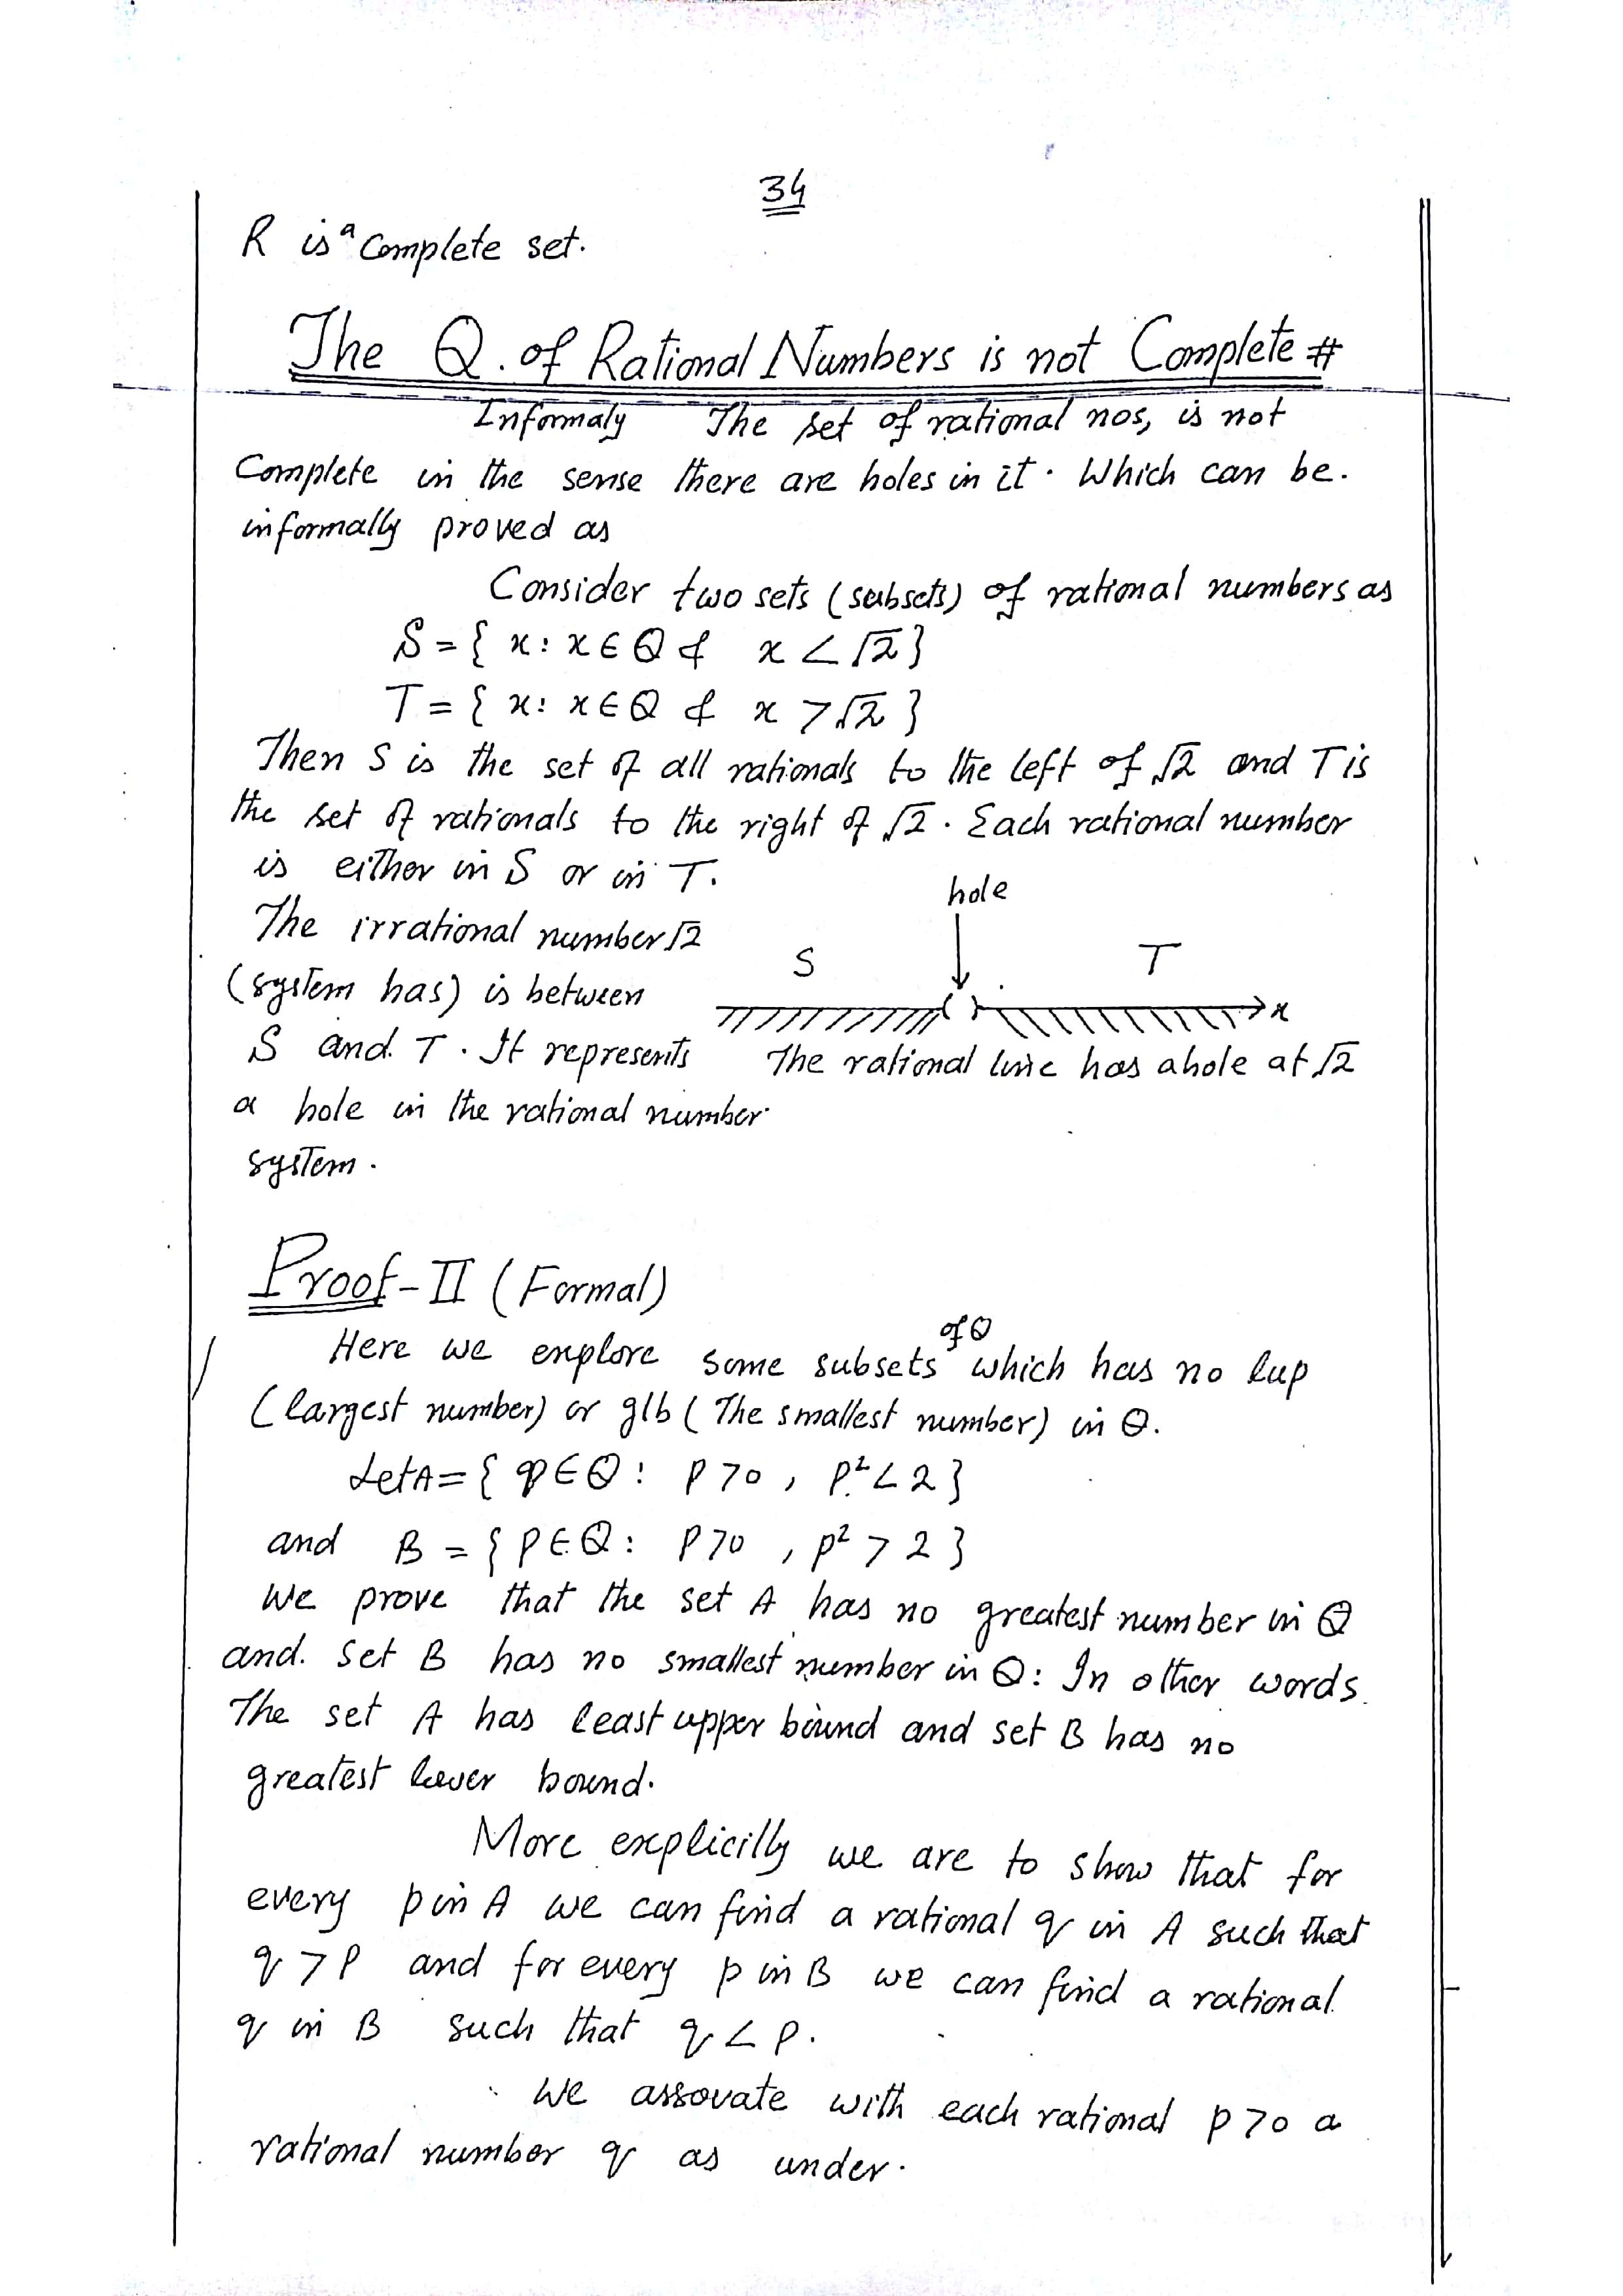 34
R is a Complete set.
The Q. of Rational Numbers is not Complete #
Informaly The set of rational nos, is not
Complete in the sense there are holes in it. Which can be.
informally proved as
Consider two sets (subsets) of rational numbers as
S = { x : x ∈ Q & x < √2 }
T = { x : x ∈ Q & x > √2 }
Then S is the set of all rationals to the left of √2 and T is
the set of rationals to the right of √2. Each rational number
is either in S or in T.
The irrational number √2
(system has) is between
S and T. It represents
a hole in the rational number
system.
hole
S T
x
The rational line has a hole at √2
Proof-II (Formal)
Here we explore some subsets of Q which has no lup
(largest number) or glb (The smallest number) in Q.
Let A = { p ∈ Q : p > 0 , p² < 2 }
and B = { p ∈ Q : p > 0 , p² > 2 }
We prove that the set A has no greatest number in Q
and. set B has no smallest number in Q: In other words.
The set A has least upper bound and set B has no
greatest lower bound.
More explicilly we are to show that for
every p in A we can find a rational q in A such that
q > p and for every p in B we can find a rational
q in B such that q < p.
We assovate with each rational p > 0 a
rational number q as under.